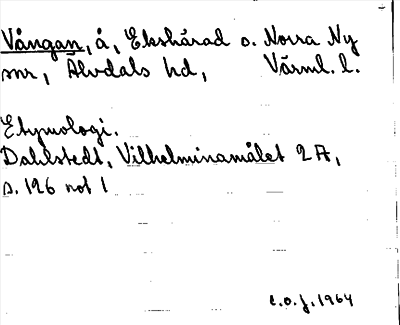 Vångan, å, Ekshärad o. Norra Ny
snr, Älvdals hd, Värml. l.
Etymologi.
Dahlstedt, Vilhelminamålet 2 A,
s. 126 not 1
C.O.J. 1964